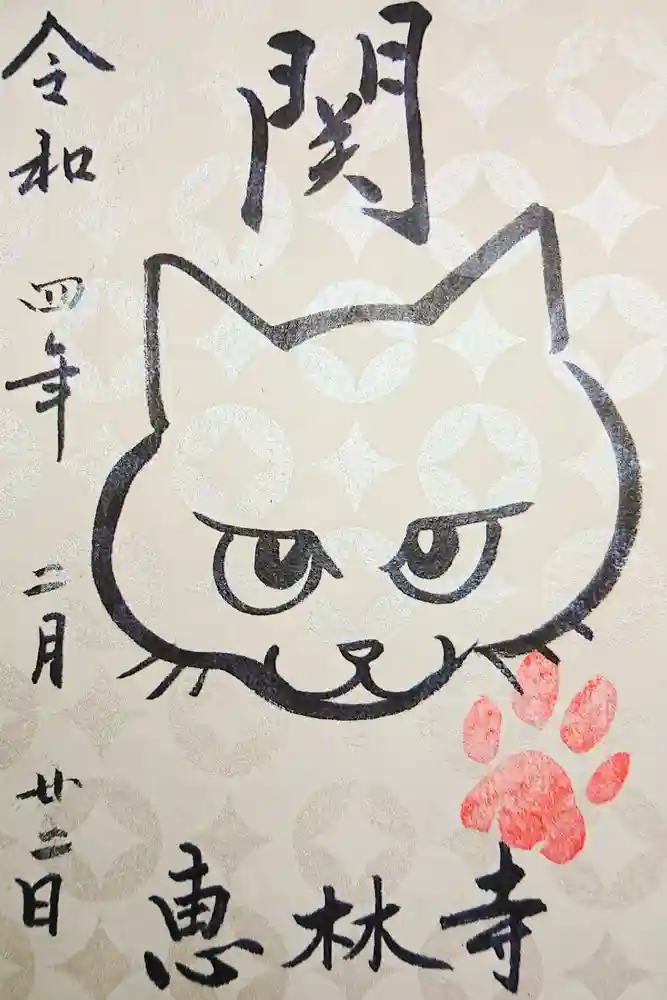 関
令和四年二月廿二日
恵林寺